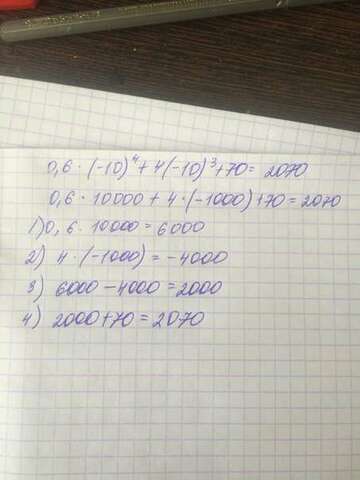 0,6 · (-10)⁴ + 4(-10)³ + 70 = 2070
0,6 · 10000 + 4 · (-1000) + 70 = 2070
1) 0,6 · 10000 = 6000
2) 4 · (-1000) = -4000
3) 6000 - 4000 = 2000
4) 2000 + 70 = 2070